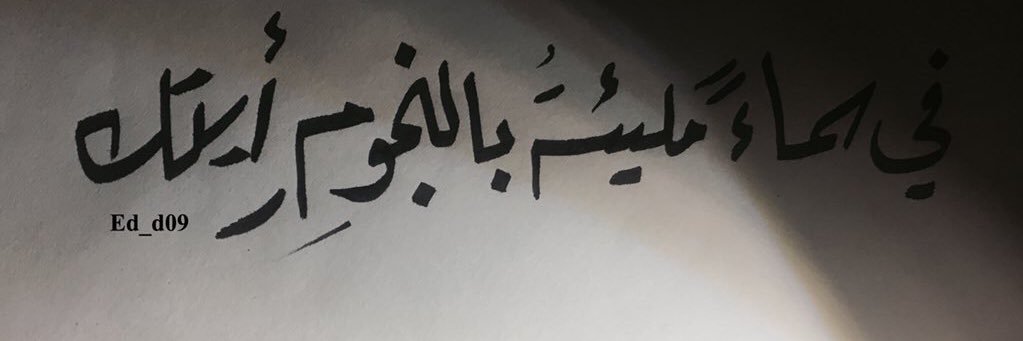 في السماءً مليئةُ بالنجومِ أرىتك
Ed_d09